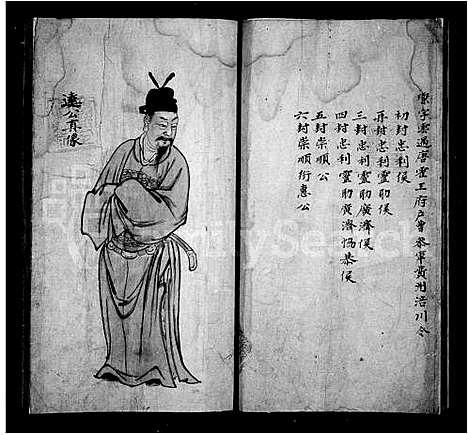 字雲過唐王府戶曹參軍黃州浯川令
初封忠利侯
再封忠利靈助侯
三封忠利靈助廣濟侯
四封忠利靈助廣濟恊恭侯
五封崇順公
六封崇順衍惠公
遠公真像
FamilySearch